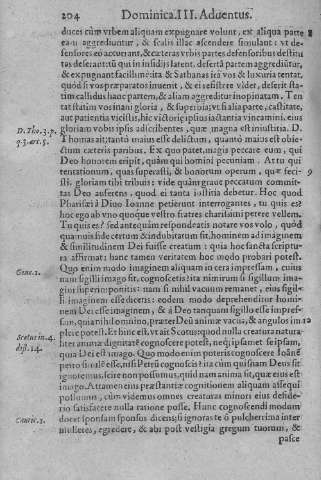 204 Dominica. III. Aduentus.
duces cùm vrbem aliquam expugnare volunt, ex aliqua parte 8
eam aggrediuntur, & scalis illac ascendere simulant: vt de-
fensores eo accurrant, & cæteras vrbis partes defensoribus destitu
tas deserant: tũ qui in insidijs latent, desertã partem aggrediũtur,
& expugnant facillimè: ita & Sathanas ira vos & luxuria tentat,
quòd si vos præparatos inuenit, & ei resistere videt, deserit sta-
tim callidus hanc partem, & aliam aggreditur inopinatam. Ten
tat statim vos inani gloria, & superbia; vt si alia parte, castitate,
aut patientia vicistis, hic victoriç ipsius iactantia vincamini. eius
D. Tho. 3. p. gloriam vobis ipsis adscribentes, quæ magna est iniustitia. D.
q. 3. art. 5. Thomas ait; tantò maius esse delictum, quantò maius est obie-
ctum cæteris paribus. Ex quo patet, magis peccare eum, qui
Deo honorem eripit, quàm qui homini pecuniam. At tu qui
tentationum, quas superasti, & bonorum operum, quæ feci- 9
sti, gloriam tibi tribuis: vide quàm graue peccatum commit-
tas Deo auferens, quod ei tanta iustitia debetur. Hoc quod
Pharisæi à Diuo Ioanne petierunt interrogantes, tu quis es?
hoc ego ab vno quoque vestrũ fratres charissimi petere vellem.
Tu quis es? sed antequàm respondeatis notare vos volo, quòd
quamuis fide certum & indubitatum sit, hominem ad imaginem
& similitudinem Dei fuisse creatum: quia hoc sancta scriptu-
ra affirmat: hanc tamen veritatem hoc modo probari potest.
Quo enim modo imaginem aliquam in cera impressam, cuius
nam sigilli imago sit, cognoscetis: ita nimirum si sigillum ima-
Gene. 1. gini superimponitis: nam si nihil vacuum remanet, eius sigil-
li imaginem esse dicetis: eodem modo deprehenditur homi-
nem Dei esse imaginem, & à Deo tanquam sigillo esse impres-
sum, quia nihil omnino, præter Deũ animæ vacua, & angulos im 10
Scotus in. 4. plere potest. Et hinc est, vt ait Scotus, quod nulla creatura natura-
dist. 14. liter animæ dignitatẽ cognoscere potest, neq; ipsamet se ipsam,
quia Dei est imago. Quo modo enim poteris cognoscere Ioãnẽ
petro similẽ esse, nisi Petrũ cognoscis: ita cùm quisnam Deus sit
ignoremus, scire non possumus, quid nam anima sit, quæ eius est
imago. Attamen eius præstantiæ cognitionem aliquam assequi
possumus, cùm videmus omnes creaturas minori eius deside-
rio satisfacere nulla ratione posse. Hunc cognoscendi modum
Cantic. 1. docet sponsam sponsus dicens; si ignoras te ô pulcherrima inter
mulieres, egredere, & abi post vestigia gregum tuorum, &
pasce